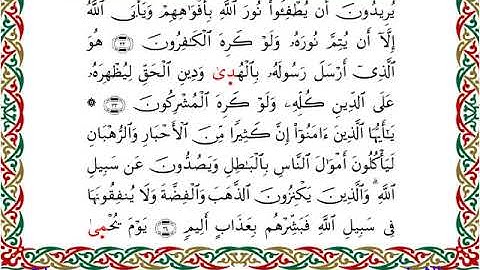 يُرِيدُونَ أَن يُطْفِـُٔوا۟ نُورَ ٱللَّهِ بِأَفْوَٰهِهِمْ وَيَأْبَى ٱللَّهُ
إِلَّآ أَن يُتِمَّ نُورَهُۥ وَلَوْ كَرِهَ ٱلْكَٰفِرُونَ هُوَ
ٱلَّذِىٓ أَرْسَلَ رَسُولَهُۥ بِٱلْهُدَىٰ وَدِينِ ٱلْحَقِّ لِيُظْهِرَهُۥ
عَلَى ٱلدِّينِ كُلِّهِۦ وَلَوْ كَرِهَ ٱلْمُشْرِكُونَ ۞
يَٰٓأَيُّهَا ٱلَّذِينَ ءَامَنُوٓا۟ إِنَّ كَثِيرًا مِّنَ ٱلْأَحْبَارِ وَٱلرُّهْبَانِ
لَيَأْكُلُونَ أَمْوَٰلَ ٱلنَّاسِ بِٱلْبَٰطِلِ وَيَصُدُّونَ عَن سَبِيلِ
ٱللَّهِ ۗ وَٱلَّذِينَ يَكْنِزُونَ ٱلذَّهَبَ وَٱلْفِضَّةَ وَلَا يُنفِقُونَهَا
فِى سَبِيلِ ٱللَّهِ فَبَشِّرْهُم بِعَذَابٍ أَلِيمٍ يَوْمَ يُحْمَىٰ